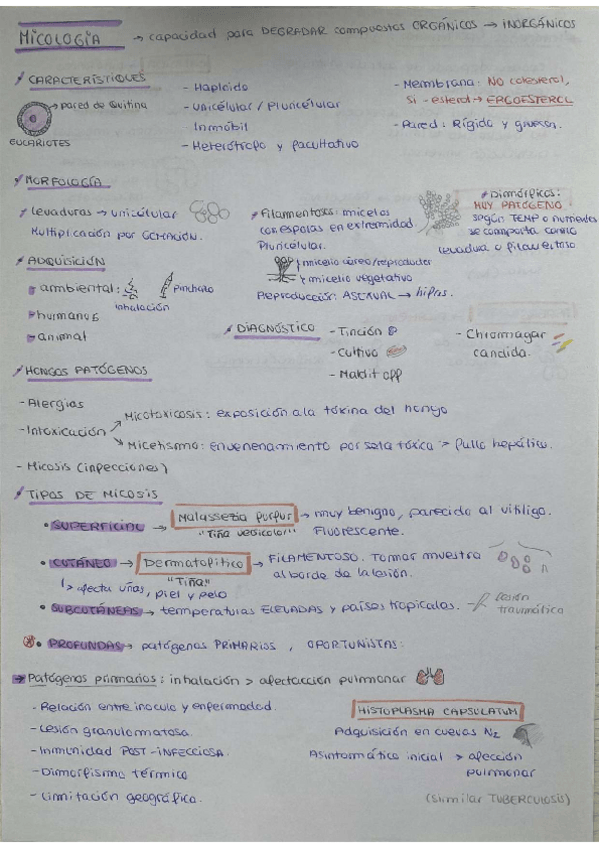 MICOLOGÍA → capacidad para DEGRADAR compuestos ORGÁNICOS → INORGÁNICOS
CARACTERÍSTIQUES
→ pared de quitina
EUCARIOTES
- Haploide
- Unicélular / Pluricélular
- Inmóbil
- Heterótrofo y facultativo
- Membrana: NO colesterol,
Si - esterol → ERGOESTEROL
- Pared: Rígida y gruesa.
MORFOLOGÍA
levaduras → unicélular
Multiplicación por GEMACIÓN.
Filamentosos: micelas
con esporas en extremidad.
Pluricélular.
micelio aéreo/reproductor
micelio vegetativo
Reproducción: ASEXUAL → hifas.
Dimórficos:
MUY PATÓGENO
según TEMP o nutrientes
se comporta como
levadura o filamentoso
ADQUISICIÓN
ambiental: inhalación pinchazo
humanos
animal
DIAGNÓSTICO
- Tinción
- Cultivo
- Maldit off
- Chromagar
candida.
HONGOS PATÓGENOS
- Alergias
- Intoxicación
Micotoxicosis: exposición a la toxina del hongo
Micetismo: envenenamiento por seta tóxica > fallo hepático.
- Micosis (infecciones)
TIPOS DE MICOSIS
• SUPERFICIAL → Malassezia furfur → muy benigno, parecido al vitiligo.
"Tiña versicolor" Fluorescente.
• CUTÁNEO → Dermatofitico → FILAMENTOSO. Tomar muestra
"Tiña" al borde de la lesión.
↳ afecta uñas, piel y pelo
• SUBCUTÁNEAS → temperaturas ELEVADAS y países tropicales. - lesión
traumática
• PROFUNDAS → patógenas PRIMARIOS, OPORTUNISTAS:
Patógenos primarios: inhalación > afectacción pulmonar
- Relación entre inoculo y enfermedad.
- Lesión granulomatosa.
- Inmunidad POST-INFECCIOSA.
- Dimorfismo térmico
- Limitación geográfica.
HISTOPLASMA CAPSULATUM
Adquisición en cuevas N₂
Asintomático inicial > afección
pulmonar
(similar TUBERCULOSIS)